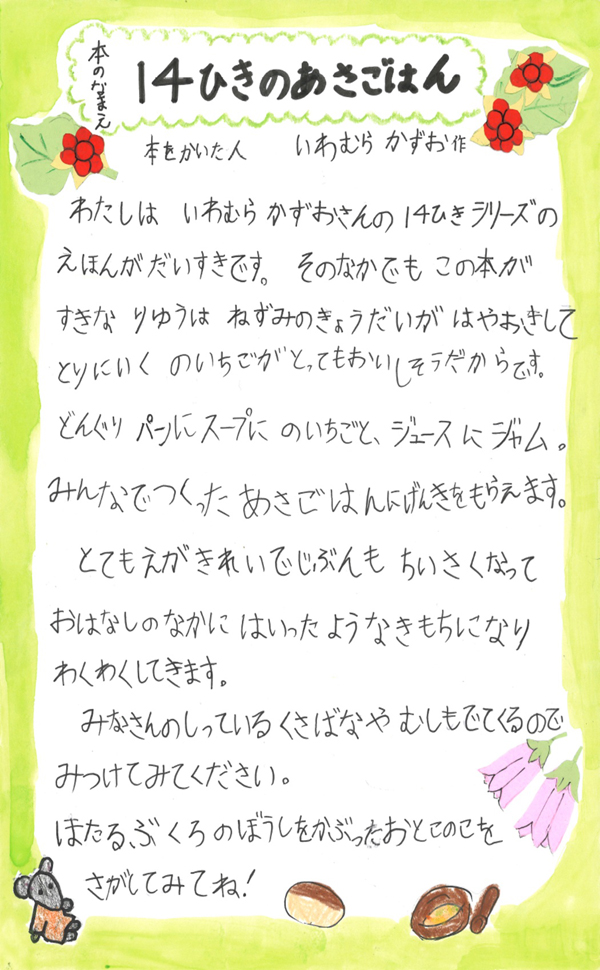 本のなまえ
14ひきのあさごはん
本をかいた人 いわむら かずお作
わたしは いわむら かずおさんの 14ひきシリーズの
えほんが だいすきです。 そのなかでも この本が
すきな りゆうは ねずみのきょうだいが はやおきして
とりにいく のいちごがとってもおいしそうだからです。
どんぐり パンに スープに のいちごと、ジュースに ジャム。
みんなでつくった あさごはんにげんきをもらえます。
とてもえが きれいでじぶんも ちいさくなって
おはなしのなかに はいった ようなきもちになり
わくわくしてきます。
みなさんのしっている くさばなや むしもでてくるので
みつけてみてください。
ほたるぶくろ のぼうしをかぶったおとこのこを
さがしてみてね!